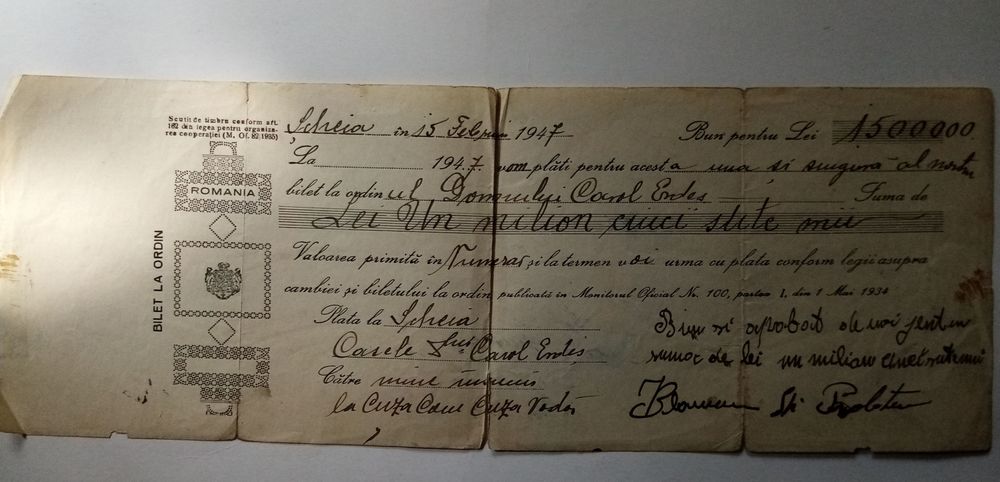 Scutit de timbru conform art.
162 din legea pentru organiza-
rea cooperației (M. Of. 82 1935)
ROMANIA
BILET LA ORDIN
Scheia în 15 Februarie 1947 Bun pentru Lei 1500000
La 1947 vom plăti pentru acest a una si singură al nostru
bilet la ordin ul Domnului Carol Erdes Suma de
Lei Un milion cinci slite mii
Valoarea primită în Numerar și la termen voi urma cu plata conform legii asupra
cambiei și biletului la ordin publicată în Monitorul Oficial Nr. 100, partea I, din 1 Mai 1934
Plata la Scheia
Casele Carol Erdes
Către mine
la Cuza Vodă
Bun si aprobat de noi pentru
suma de lei un milion